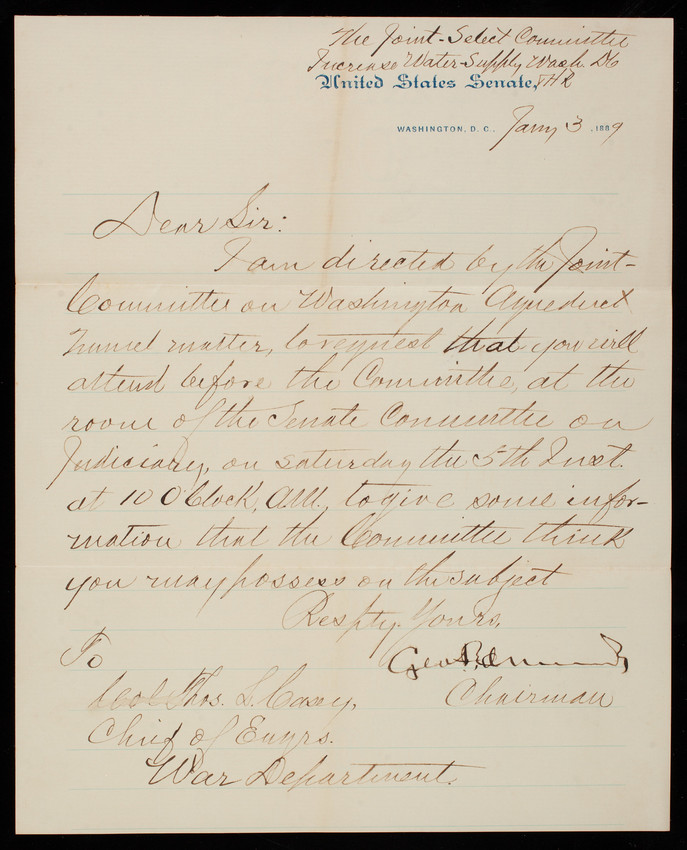 The Joint-Select Committee
Increase Water-Supply Wash DC
United States Senate, & H R
WASHINGTON, D. C., Jany 3, 1889
Dear Sir:
I am directed by the Joint-
Committee on Washington Aqueduct
Tunnel matter, to request that you will
attend before the Committee, at the
room of the Senate Committee on
Judiciary, on Saturday the 5th Inst.
at 10 O'Clock, A.M., to give some infor-
mation that the Committee think
you may possess on the subject
Respty. Yours,
Geo F. Edmunds
Chairman
To
Col Thos. L. Casey,
Chief of Engrs.
War Department.